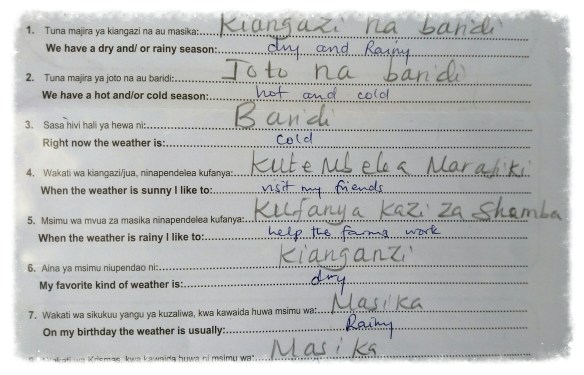 1. Tuna majira ya kiangazi na au masika: Kiangazi na baridi
We have a dry and/ or rainy season: dry and Rainy
2. Tuna majira ya joto na au baridi: Joto na baridi
We have a hot and/or cold season: hot and cold
3. Sasa hivi hali ya hewa ni: Baridi
Right now the weather is: cold
4. Wakati wa kiangazi/jua, ninapendelea kufanya: Kutembelea Marafiki
When the weather is sunny I like to: visit my friends
5. Msimu wa mvua za masika ninapendelea kufanya: Kufanya kazi za Shamba
When the weather is rainy I like to: help the farms work
6. Aina ya msimu niupendao ni: Kianganzi
My favorite kind of weather is: dry
7. Wakati wa sikukuu yangu ya kuzaliwa, kwa kawaida huwa msimu wa: Masika
On my birthday the weather is usually: Rainy
Krismas, kwa kawaida huwa ni msimu wa: Masika